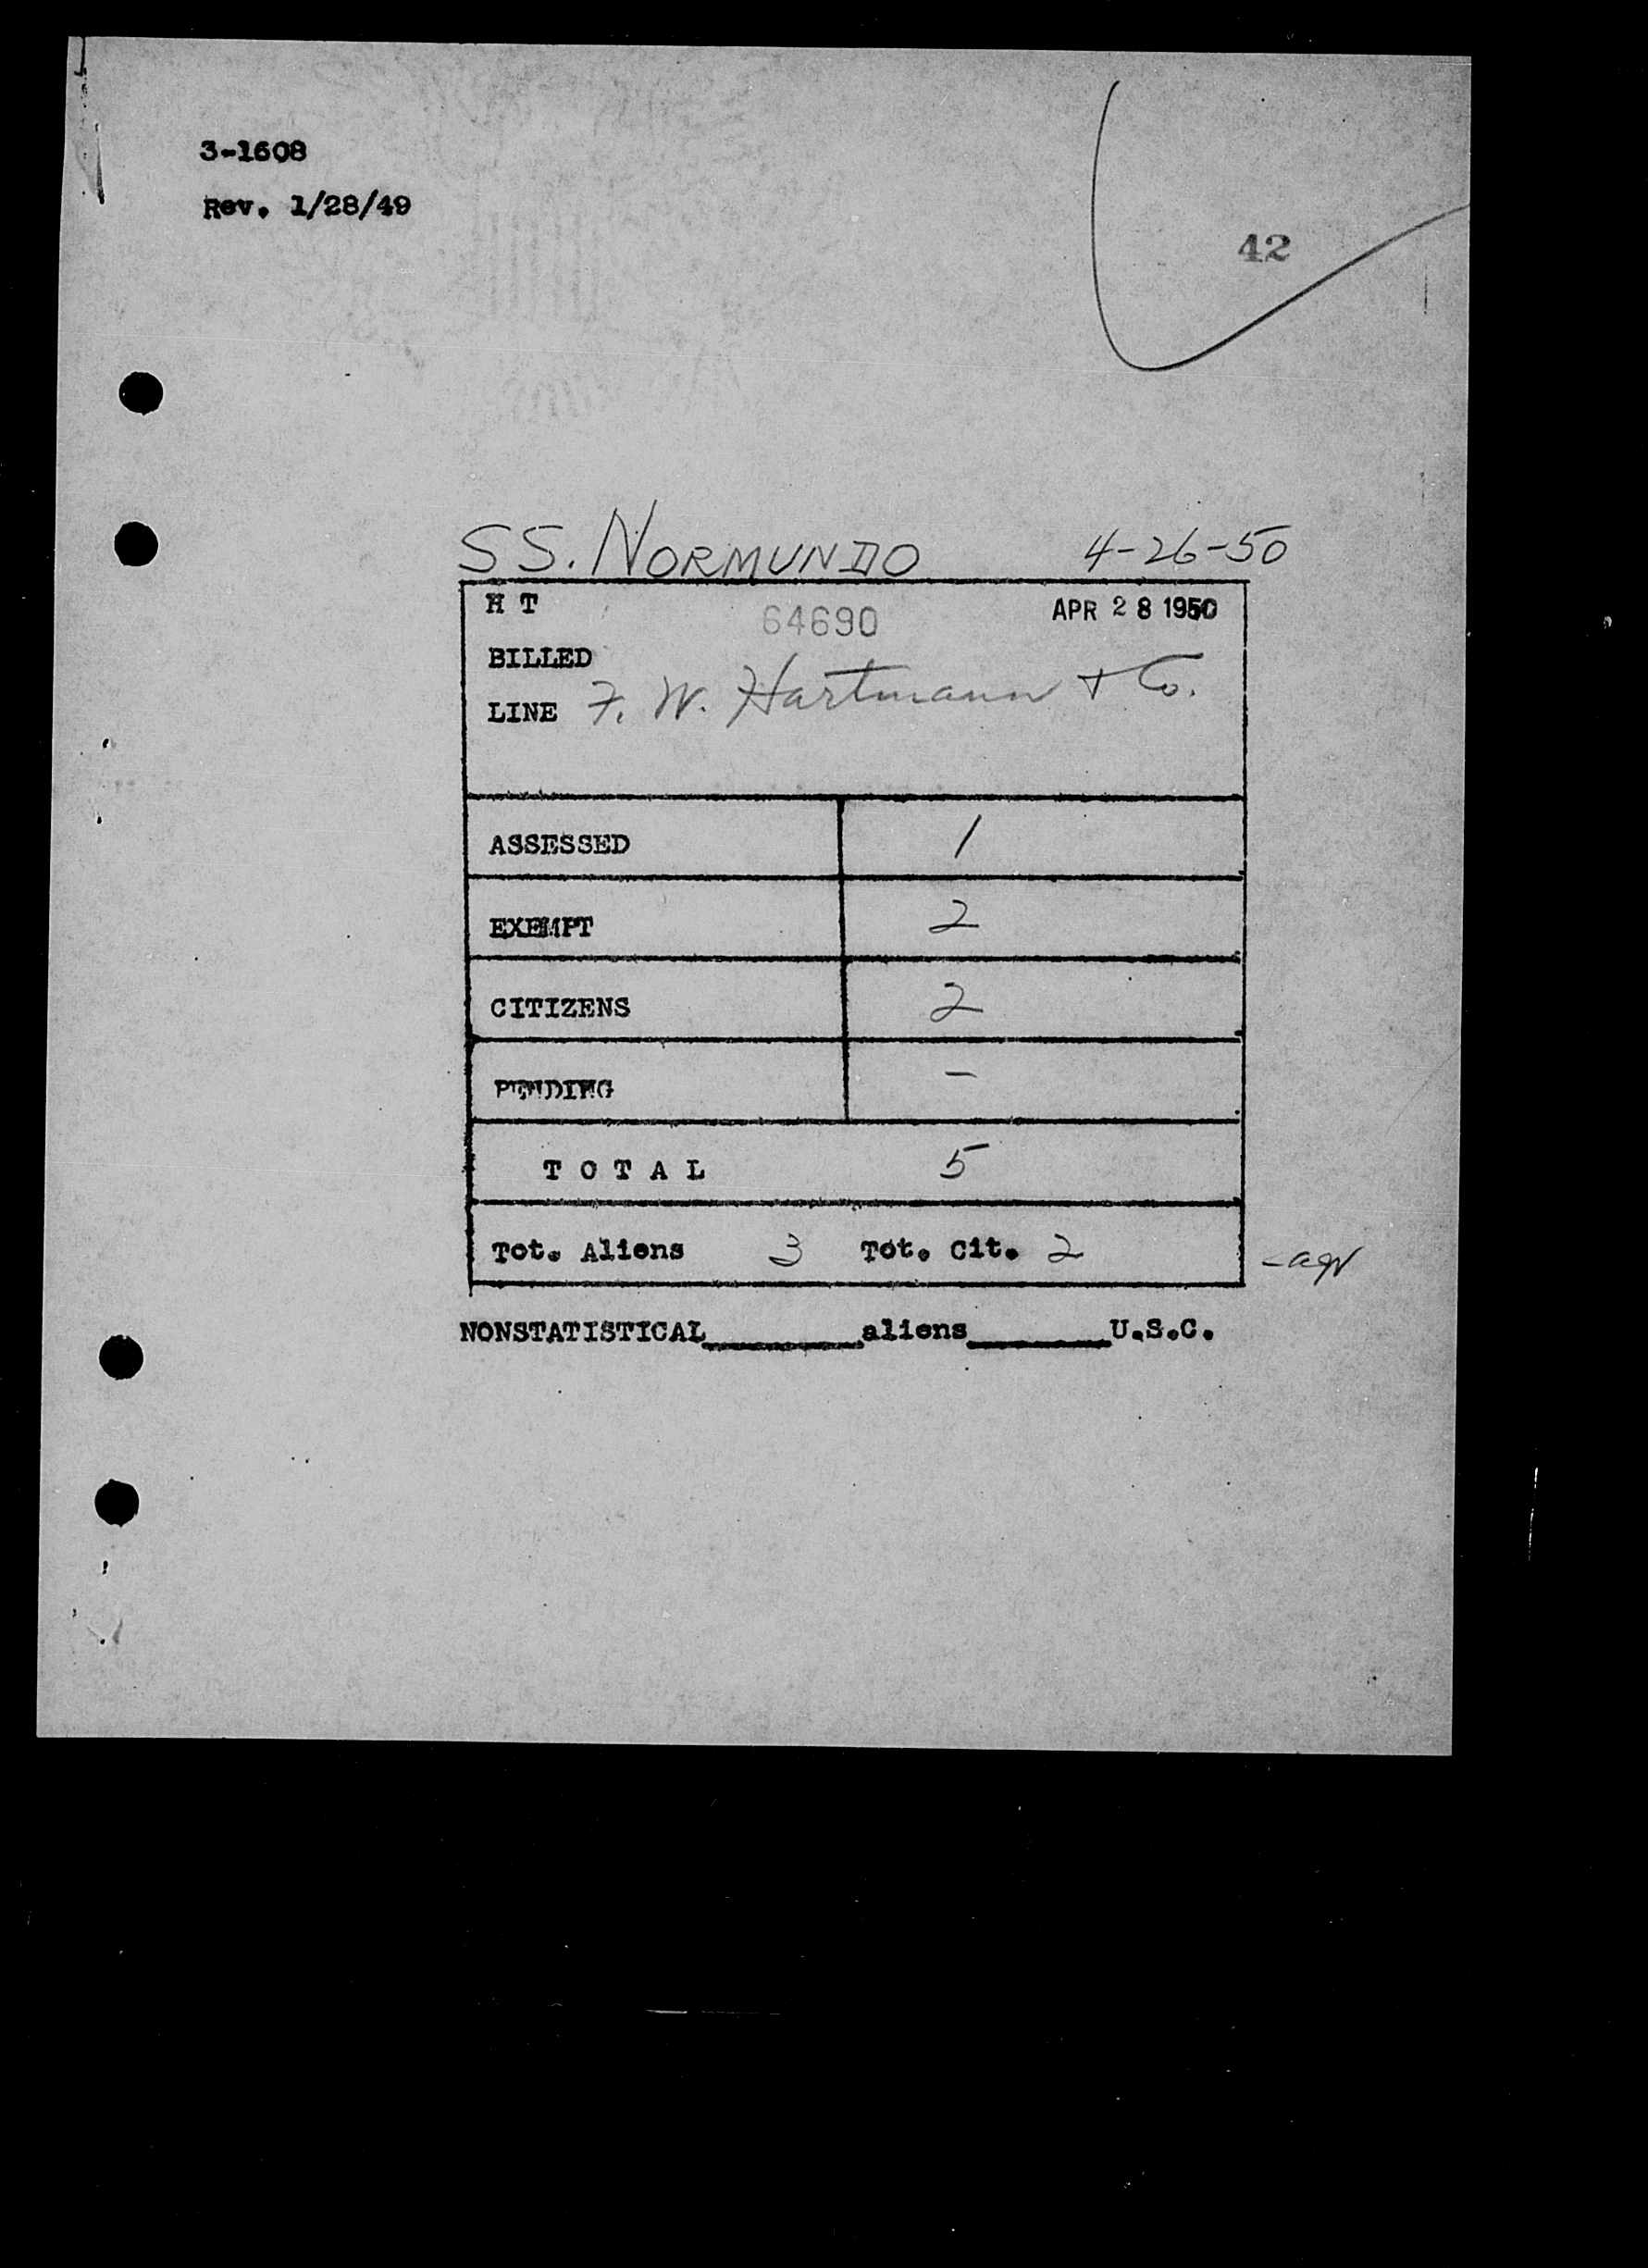 3-1608
Rev. 1/28/49
42
SS. NORMUNDO 4-26-50
H T 64690 APR 28 1950
BILLED
LINE F. W. Hartmann + Co.
ASSESSED 1
EXEMPT 2
CITIZENS 2
PENDING -
TOTAL 5
Tot. Aliens 3 Tot. Cit. 2
NONSTATISTICAL________aliens________U.S.C.